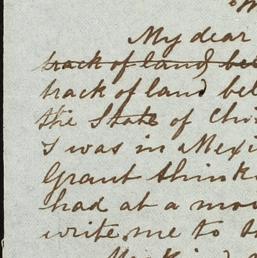 My dear
track of land, bel
track of land bel
the State of Chi
I was in Mexi
Grant thinki
had at a mo
write me to th